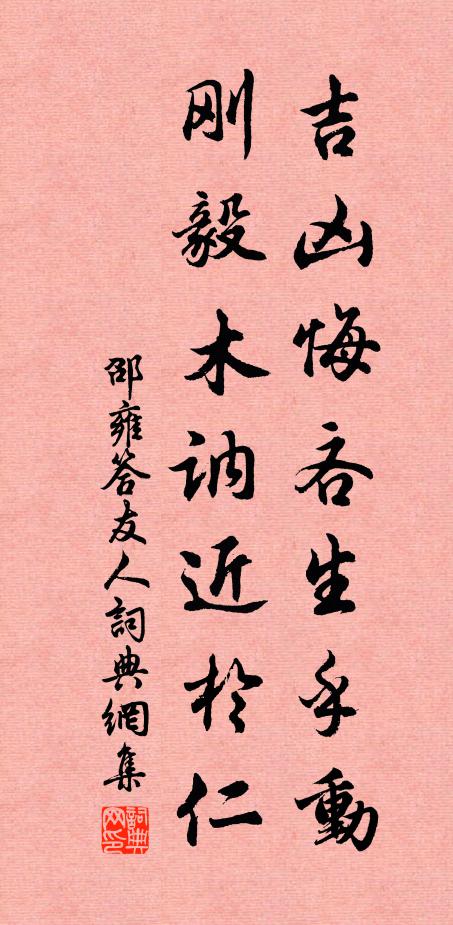 吉凶悔吝生乎動
刚毅木訥近於仁
邵雍答友人詞典網集
詞典网印